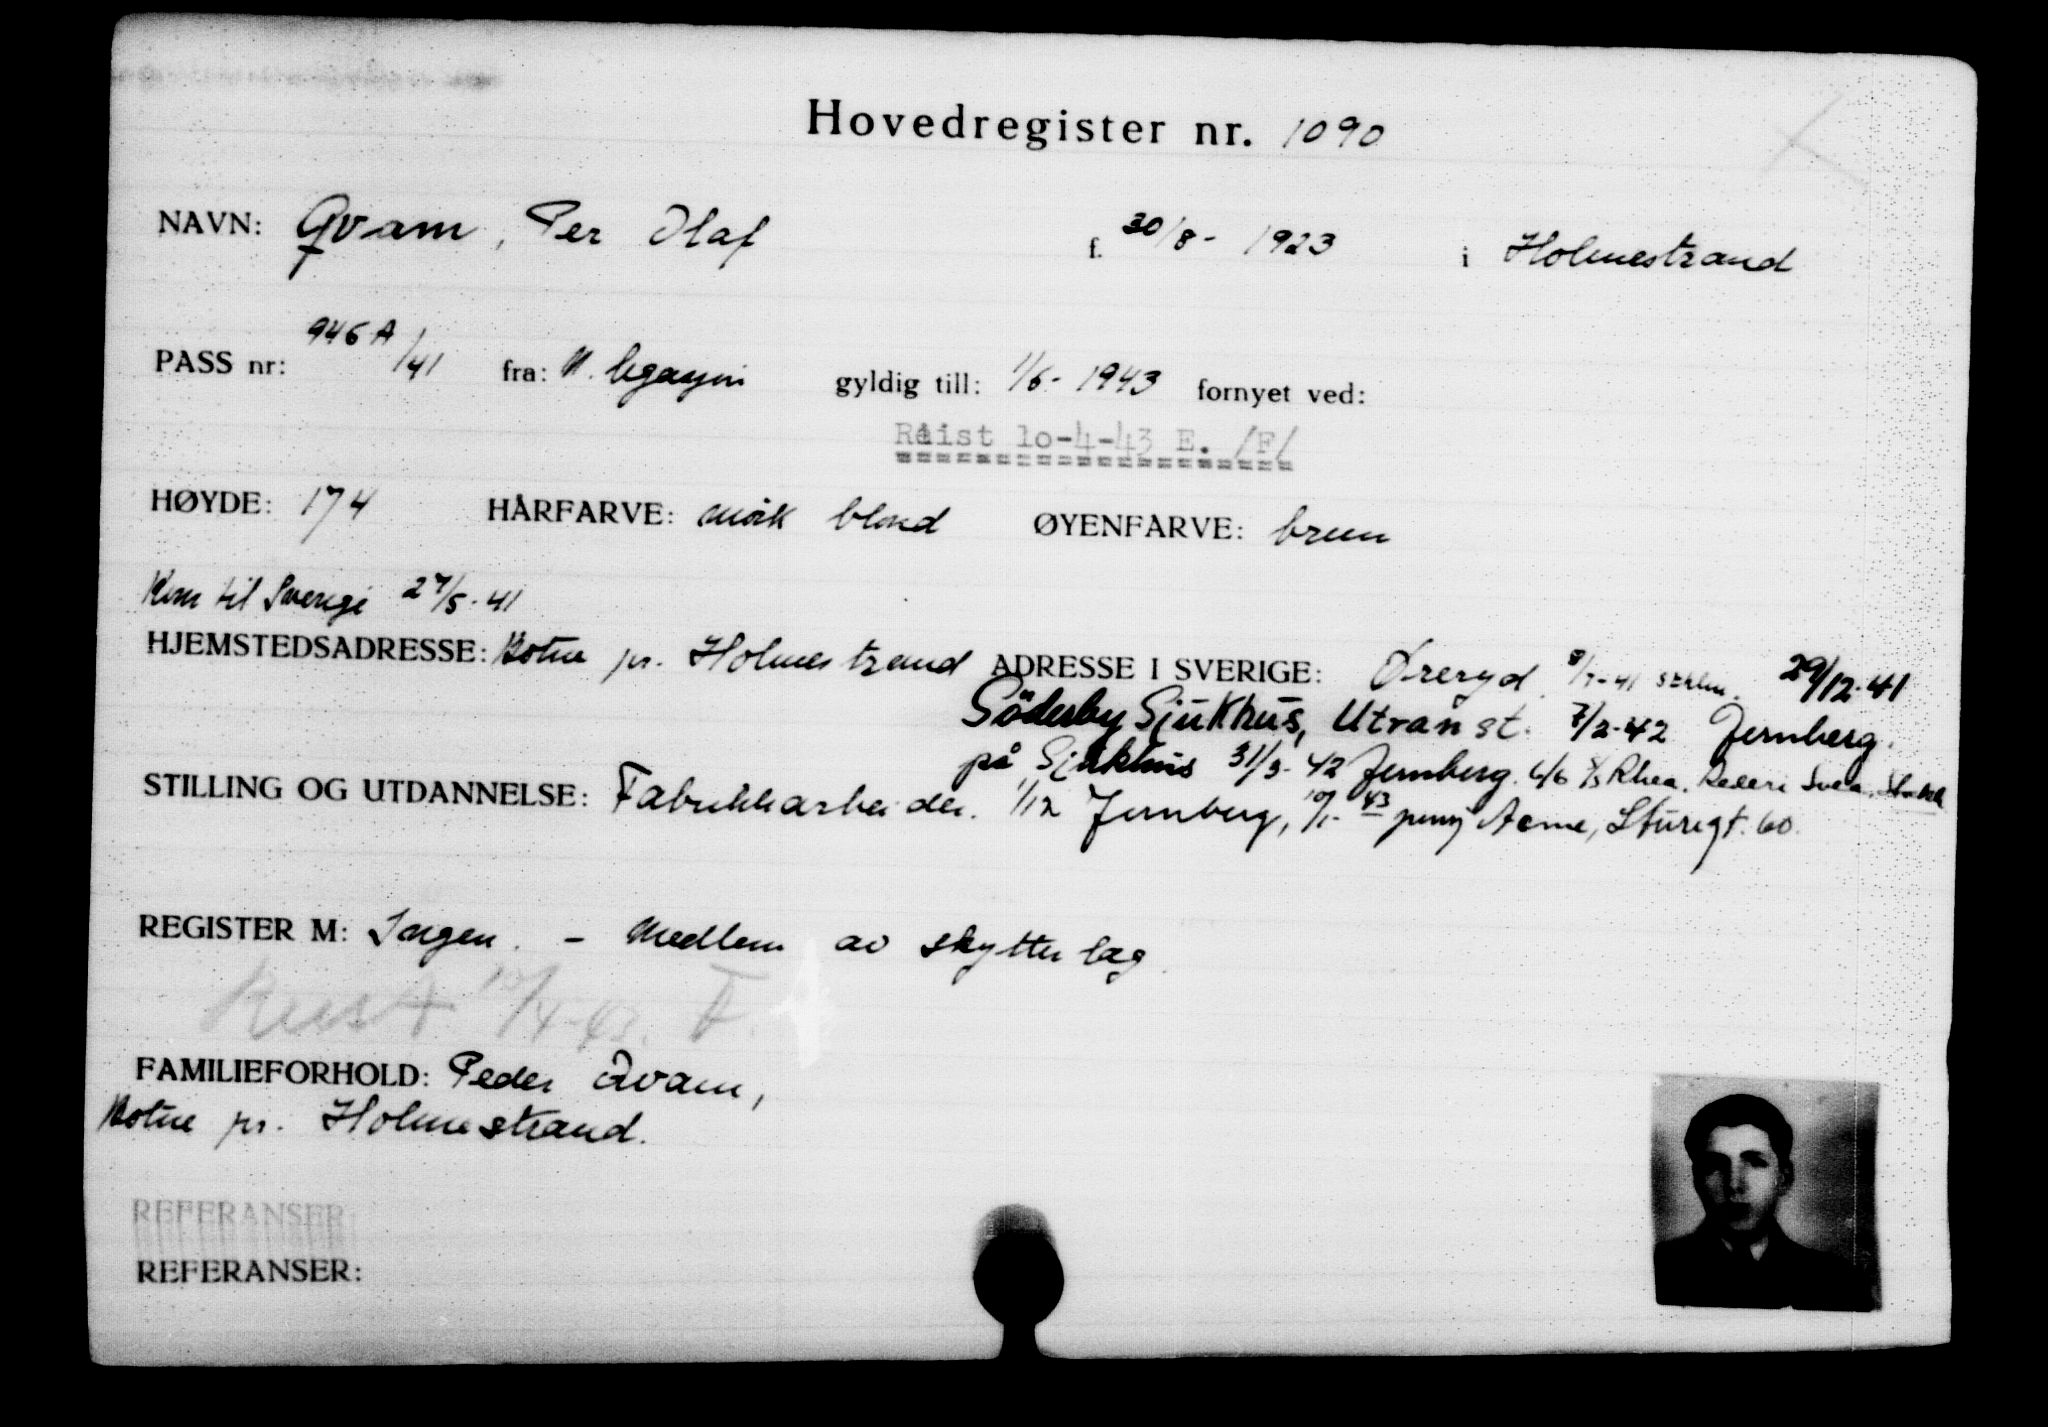 Hovedregister nr. 1090
NAVN: Qvam, Per Olaf f. 30/8 - 1923 i Holmestrand
PASS nr: 946 A/41 fra: N. legasjon gyldig till: 1/6 - 1943 fornyet ved:
Reist 10-4-43 E. /F/
HØYDE: 174 HÅRFARVE: mørk blond ØYENFARVE: brun
Kom til Sverige 27/5-41
HJEMSTEDSADRESSE: Botne pr. Holmestrand ADRESSE I SVERIGE: Øreryd 8/7-41 29/12-41
Söderby Sjukhus, Utran st. 7/2-42 Jernberg.
på Sjukhus 31/3-42 Jernberg. Rhea. Rederi Svea.
STILLING OG UTDANNELSE: Fabrikkarbeider. 1/12 Jernberg, 43 Acme, Sturegt. 60.
REGISTER M: Ingen. - Medlem av skytterlag.
Reist 10/4-43. F.
FAMILIEFORHOLD: Peder Qvam,
Botne pr. Holmestrand.
REFERANSER
REFERANSER: